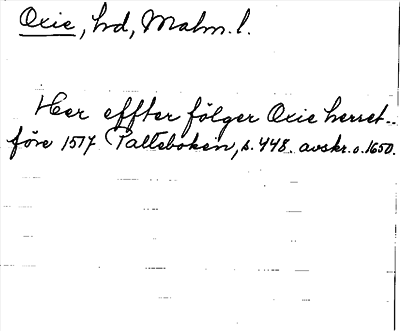 Oxie, hd, Malm. l.
Her effter følger Oxie herret..
före 1517 Palteboken, s. 448. avskr. o. 1650.